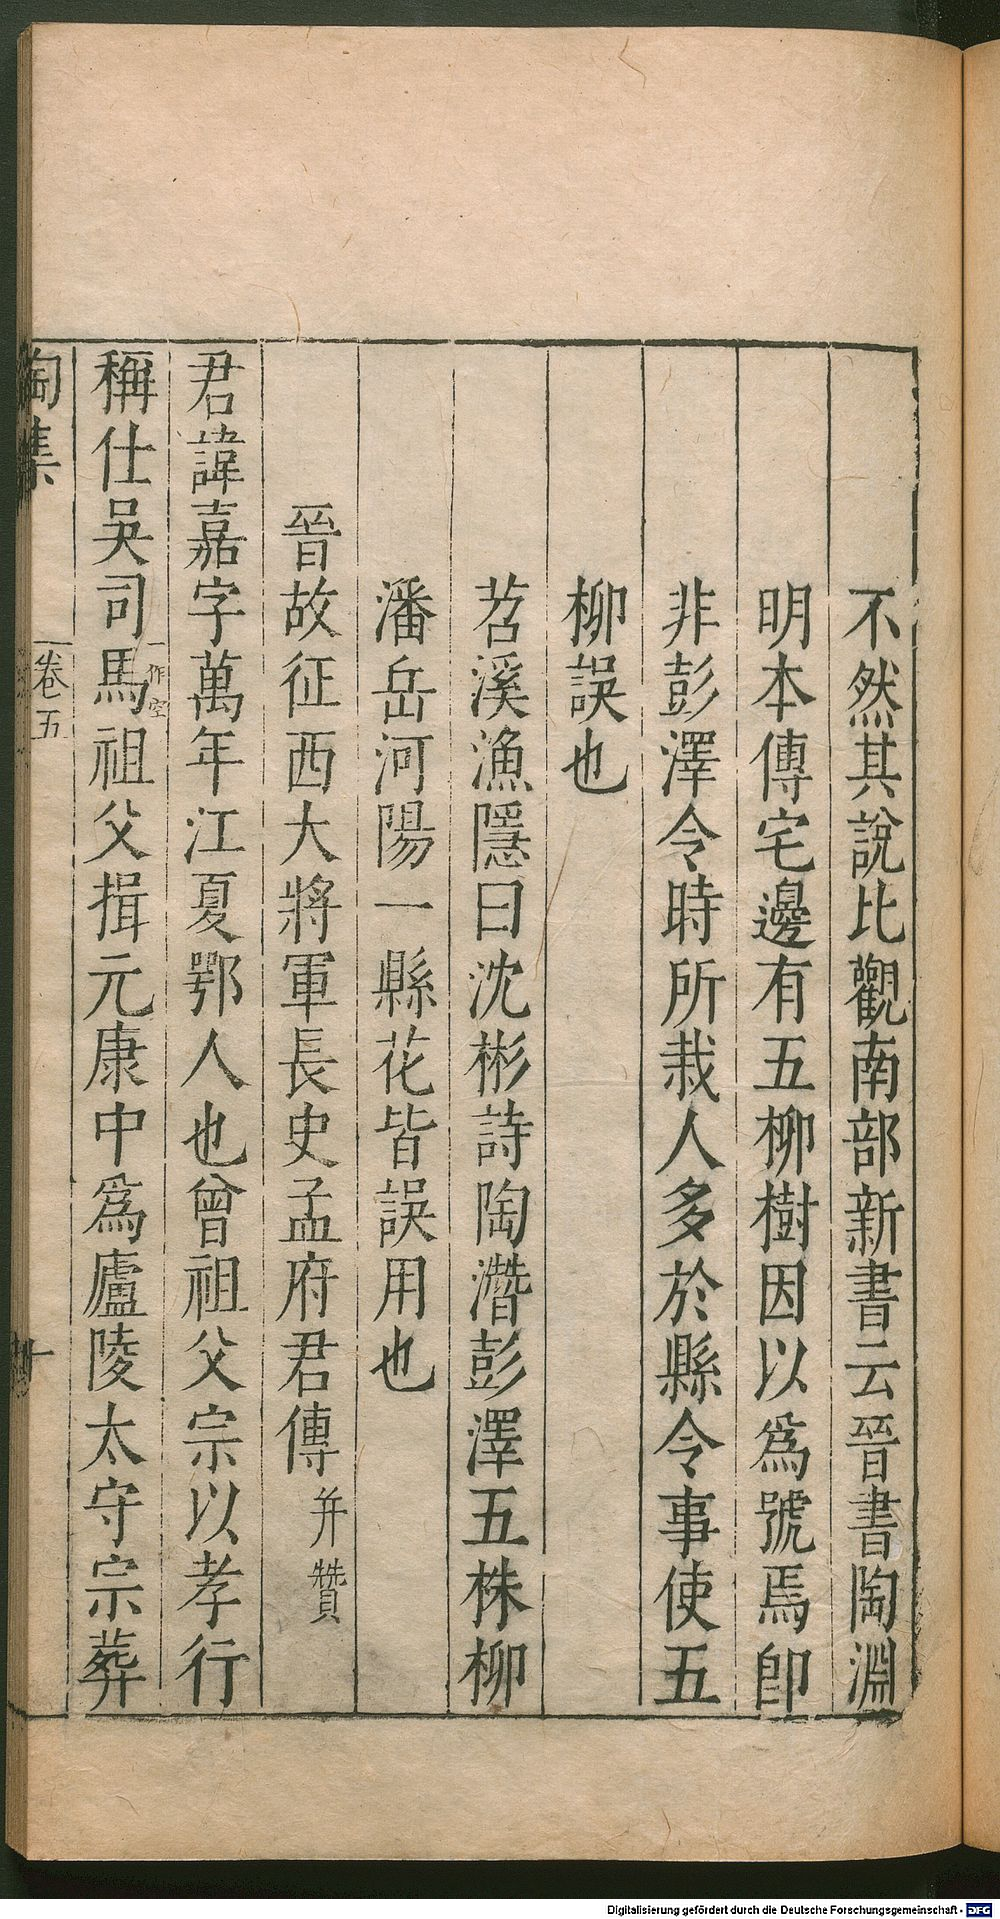 不然其說比觀南部新書云晉書陶淵
明本傳宅邊有五柳樹因以爲號焉卽
非彭澤令時所栽人多於縣令事使五
柳誤也
苕溪漁隱曰沈彬詩陶潛彭澤五株柳
潘岳河陽一縣花皆誤用也
晉故征西大將軍長史孟府君傳并贊
君諱嘉字萬年江夏鄂人也曾祖父宗以孝行
稱仕吳司馬一作空祖父揖元康中爲廬陵太守宗葬
陶集 卷五 十
Digitalisierung gefördert durch die Deutsche Forschungsgemeinschaft - DFG